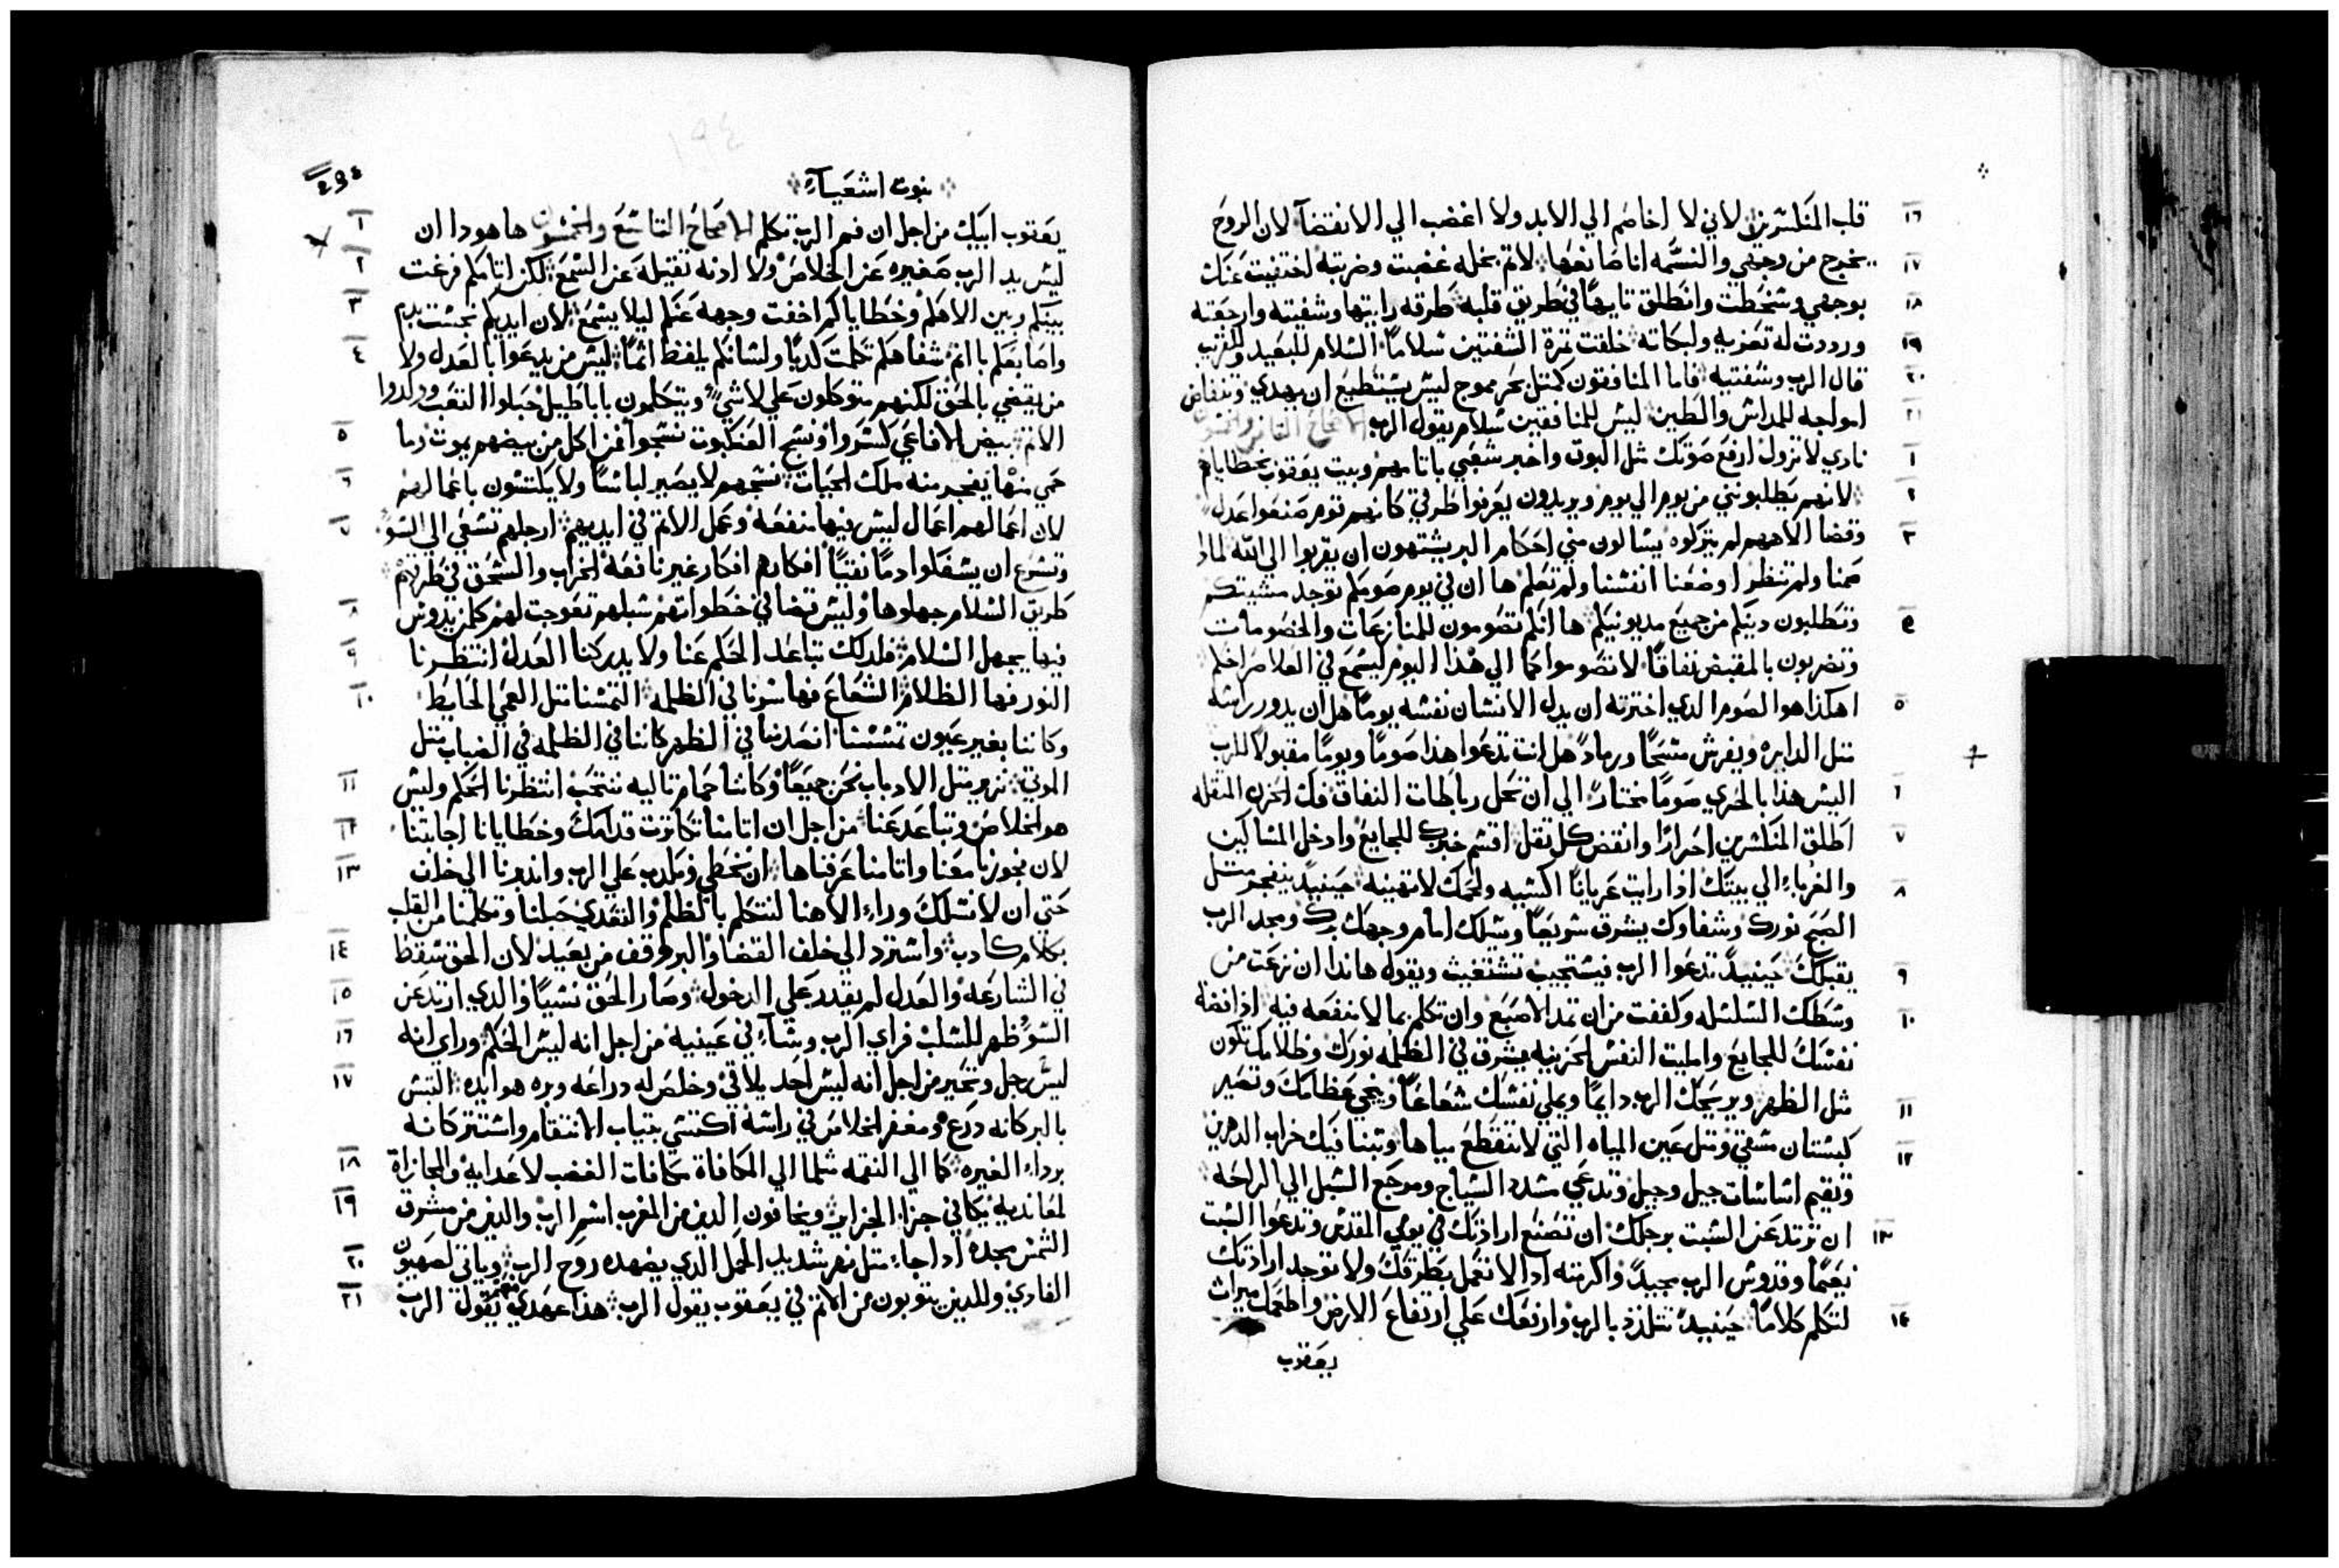 ١٦ قلب المنكسرين لاني لا اخاصم الي الابد ولا اغضب الي الانقضآ لان الروح
١٧ يخرج من وجهي والنسمه انا صانعها لاثم بخله غضبت وضربته اختفيت عنك
١٨ بوجهي وسخطت وانطلق تايهًا في طريق قلبه طرقه رايتها وشفيته وارجعته
١٩ ورددت له تعزيه ولبكاته خلقت ثمرة الشفتين سلامًا السلام للبعيد وللقريب
٢٠ قال الرب وشفيته فاما المنافقون كمثل بحر مموج ليس يستطيع ان يهدي وتنفاض
٢١ امواجه للمداس والطين ليس للمنافقين سلام يقول الرب الاصحاح الثامن والخمسون
١ نادي لا تزول ارفع صوتك مثل البوق واخبر شعبي باثامهم وبيت يعقوب بخطاياهم
٢ لانهم يطلبونني من يوم الي يوم ويريدون يعرفوا طرقي كانهم قوم صنعوا عدل
٣ وقضا الاههم لم يتركوه يسالون مني احكام البر يشتهون ان يقربوا الي الله لماذا
صمنا ولم تنظر اوضعنا انفسنا ولم تعلم ها ان في يوم صومكم توجد مشيتكم
٤ وتطلبون دينكم من جميع مديونيكم ها انكم تصومون للمنازعات والخصومات
وتضربون بالمقبض نفاقًا لا تصوموا كما الي هذا اليوم ليسمع في العلا صراخكم
٥ اهكذا هو الصوم الدي اخترته ان يدل الانسان نفسه يومًا هل ان يدور راسه
مثل الدايره ويفرش مسحًا ورمادً هل انت تدعوا هذا صومًا ويومًا مقبولا للرب
٦ اليس هذا بالحري صومًا مختارً الي ان تحل رباطات النفاق فك الحزم المثقله
٧ اطلق المنكسرين احرارًا وانقض كل ثقل اقسم خبزك للجايع وادخل المساكين
٨ والغرباء الي بيتك اذا رايت عريانًا اكسيه ولحمك لا تهينه حينيدً ينفجر مثل
الصبح نورك وشفاوك يشرق سريعًا ويسلك امام وجهك برك ومجد الرب
٩ يقبلك حينيدً تدعوا الرب فيستجيب تستغيث ويقول هاندا ان نزعت من
١٠ وسطك السلسله وكففت من ان تمد الاصبع وان تكلم بما لا منفعه فيه اذا انضه
نفسك للجايع وامليت النفس الحزينه يشرق في الظلمه نورك وظلامك تكون
١١ مثل الظهر ويريحك الرب دايمًا ويملي نفسك شعاعًا وينجي عظامك وتصير
١٢ كبستان مسقي ومثل عين المياه التي لا تنقطع مياها وتبنا فيك خراب الدهرين
وتقيم اساسات جيل وجيل وتدعي مشدد السياج ومرجع السبل الي الراحه
١٣ ان ترتد عن السبت برجلك ان تصنع ارادتك في يومي المقدس وتدعوا السبت
نعيمًا وقدوس الرب مجيدً واكرمته ادا لا تعمل بطرقك ولا توجد ارادتك
١٤ لتكلم كلامًا حينيدً تتلدد بالرب وارفعك علي ارتفاع الارض واطعمك ميراث
يعقوب
نبوت اشعيآء
١ يعقوب ابيك من اجل ان فم الرب تكلم الاصحاح التاسع والخمسون ها هودا ان
٢ ليس يد الرب صغيره عن الخلاص ولا ادنه ثقيله عن السمع لكن اثامكم فرغت
٣ بينكم وبين الاهكم وخطاياكم اخفت وجهه عنكم ليلا يسمع لان ايديكم نجست بدم
٤ واصابعكم باثم شفاهكم تكلمت كدبًا ولسانكم يلفظ اثمًا ليس من يدعوا بالعدل ولا
من يقضي بالحق لكنهم متوكلون علي لا شي ويتكلمون باباطيل حبلوا التعب وولدوا
٥ الاثم بيض الافاعي كسروا ونسج العنكبوت نسجوا فمن اكل من بيضهم يموت وما
٦ حمي منها يفجر منه ملك الحيات نسجهم لا يصير لباسًا ولا يكتسون باعمالهم
٧ لان اعمالهم اعمال ليس فيها منفعه وعمل الاثم في ايديهم ارجلهم تسعي الي السو
وتسرع ان يسفكوا دمًا نقيًا افكارهم افكار غير نافعه الخراب والسحق في طرقهم
٨ طريق السلام جهلوها وليس قضا في خطواتهم سبلهم تعوجت لهم كلمن يدوس
٩ فيها يجهل السلام فلدلك تباعد الحكم عنا ولا يدركنا العدل انتظرنا
١٠ النور فها الظلام الشعاع فها سرنا في الظلمه التمسنا مثل العمي الحايط
وكاننا بغير عيون تمسسنا انصدمنا في الظهر كاننا في الظلمه في الضباب مثل
١١ الموتي نزير مثل الادباب نحن جميعًا وكاننا حمام تاليه ننتحب انتظرنا الحكم وليس
١٢ هو الخلاص وتباعد عنا من اجل ان اثامنا تكاثرت قدامك وخطايانا اجابتنا
١٣ لان فجورنا معنا واثامنا عرفناها ان نخطي ونكدب علي الرب واندبرنا الي خلف
حتي ان لا نسلك وراء الاهنا لنتكلم بالظلم والتعدي حبلنا وتكلمنا من القلب
١٤ بكلام كادب واسترد الي خلف القضا والبر وقف من بعيد لان الحق سقط
١٥ في الشارعه والعدل لم يقدر علي الدخول وصار الحق نسيًا والدي ارتد عن
١٦ السو ظهر للسلب فراي الرب وسآء في عينيه من اجل انه ليس الحكم وراي انه
١٧ ليس رجل وتحير من اجل انه ليس احد يلاقي وخلص له دراعه وبره هو ايده التبس
بالبر كانه درع ومغفر الخلاص في راسه اكتسي بتياب الانتقام واشتتر كانه
١٨ برداء الغيره كما الي النقمه مثلما الي المكافاة مكافات الغضب لاعدايه والمجازاة
١٩ لمعانديه يكافي جزاء الجزاير ويخافون الدين من المغرب اسم الرب والدين من مشرق
٢٠ الشمس مجده ادا جاء مثل نهر شديد الحمل الدي يضهده روح الرب وياتي لصهيون
٢١ الفادي وللدين يتوبون من الاثم في يعقوب يقول الرب هذا عهدي معهم يقول الرب